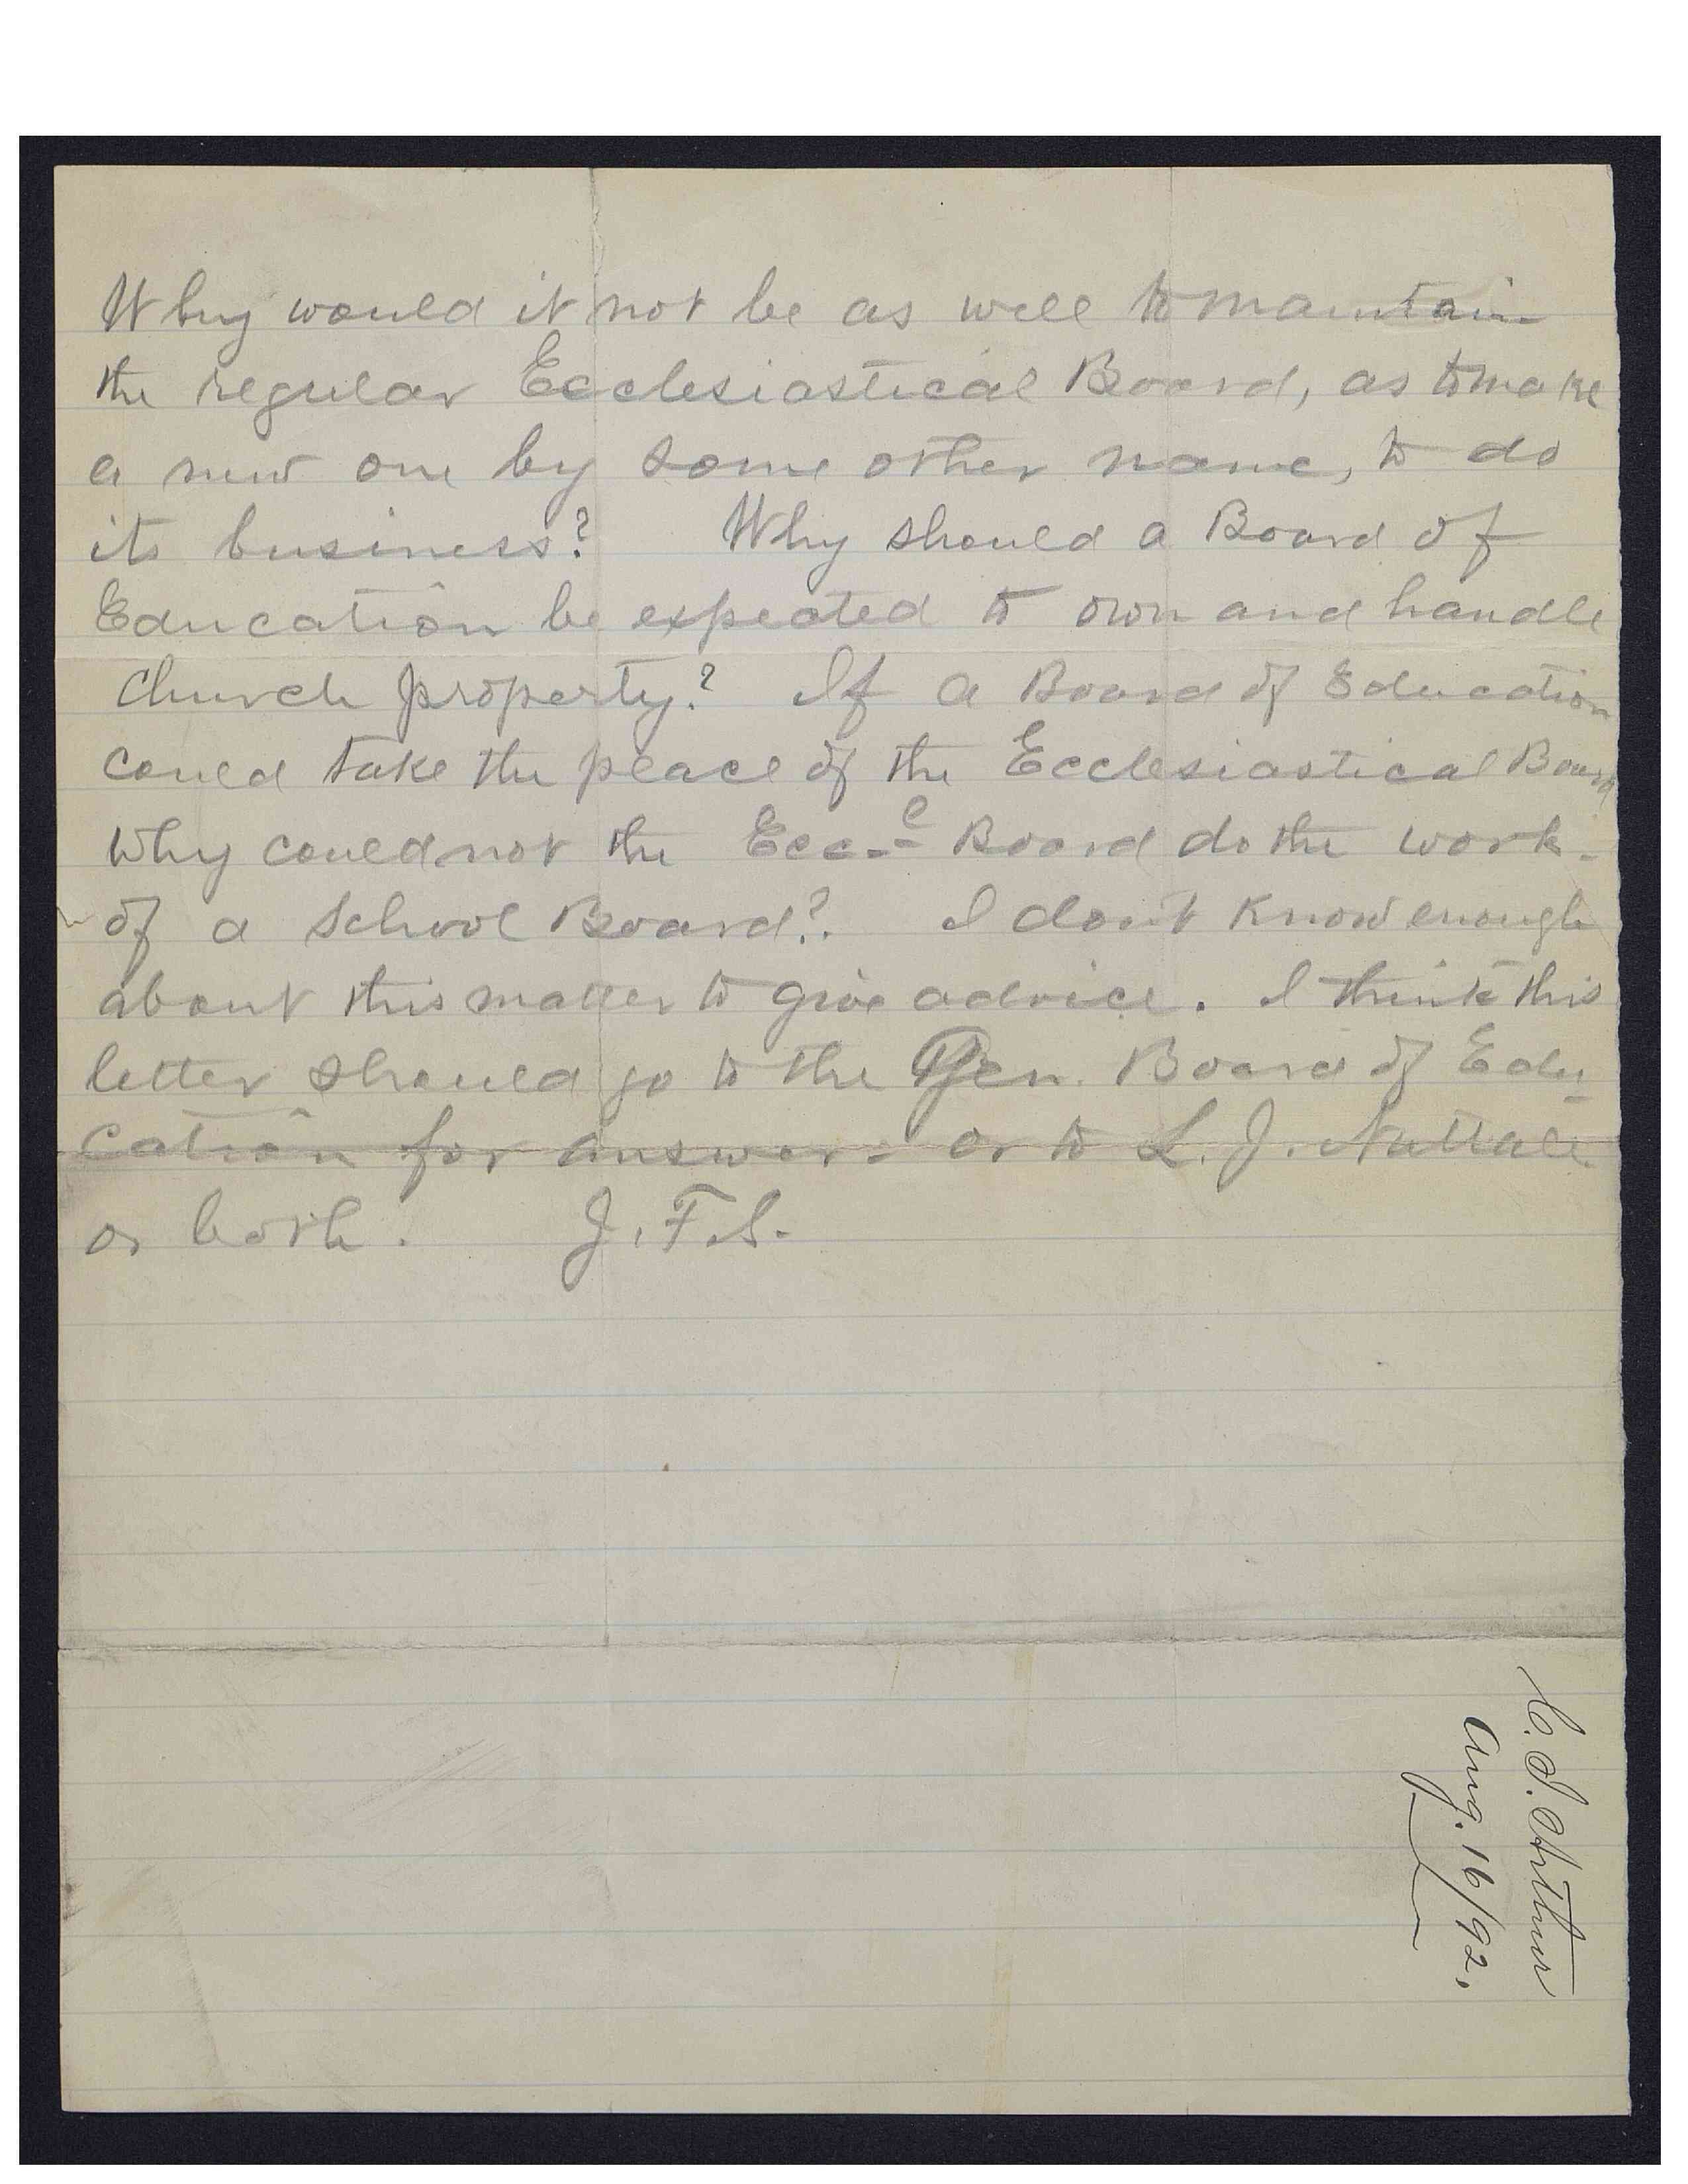 Why would it not be as well to maintain
the regular Ecclesiastical Board, as to make
a new one by some other name, to do
its business? Why should a Board of
Education be expected to own and handle
Church property? If a Board of Education
could take the place of the Ecclesiastical Board
why could not the Eccl Board do the work
of a School Board? I don't know enough
about this matter to give advice. I think this
letter should go to the Gen. Board of Edu-
cation for answer - or to L. J. Nuttall
or both. J. F. S.
C. S. Arthur
Aug. 16/92.